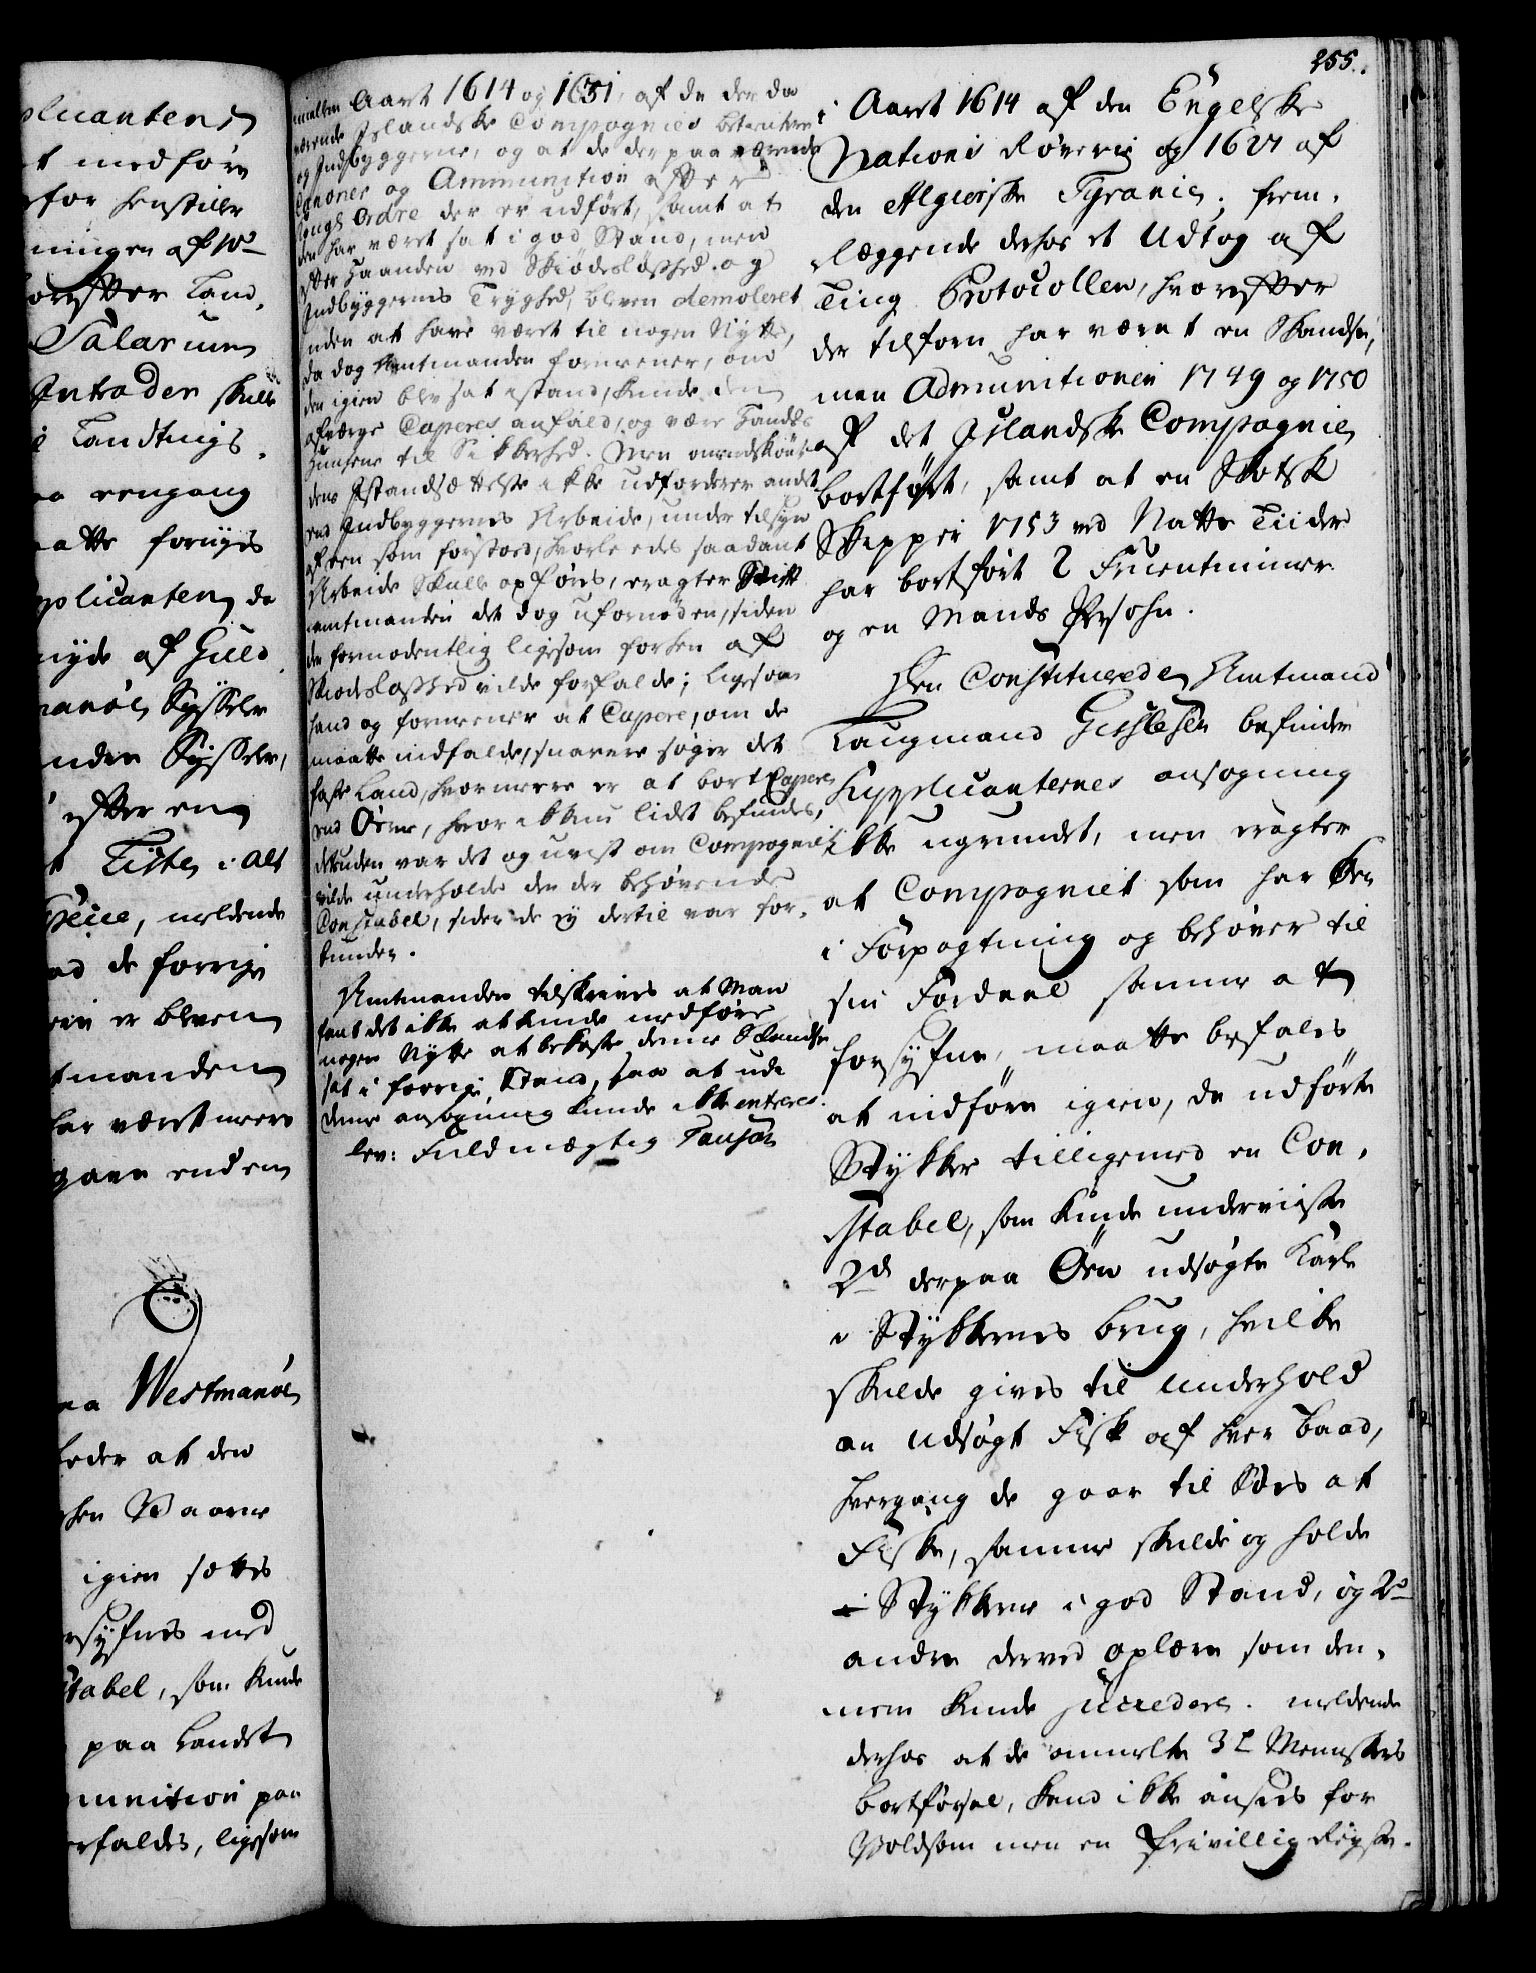 plicantens
t medføre
for henstiller
ningen af to
orefter Land,
Salarium
Intrader skulle
i Landtings,
aa eengang
aatte fornyes
plicanten, da
nyde af Guld,
manøe Syssel
nden Syssele,
efter en
t Liste, i alt
Specie, meldende
ad de forrige
er bleven
tmanden
har været meere
gave end en
aa Westmanøe
beder at den
igien sættes
syfnes med
stabel, som kunde
paa Landet
munition paa
rfaldes, ligesom
imellem Aaret 1614 og 1631, af de der da
værende Islandske Compagnies betientere
og Indbyggerne, og at de der paa værende
Canoner og Ammunition efter
Kongl Ordre der er udført, samt at
den har været sat i god Stand, men
efter Haanden ved Skiødesløshed og
Indbyggernes Tryghed, bleven demoleret
uden at have været til nogen Nytte,
da dog Amtmanden formener, om
den igien blev sat i stand, kunde den
afværge Capere anfald, og være Handels
Husene til Sikkerhed. Men omendskiønt
dens Istandsættelse ikke udfordrer andet
end Indbyggernes Arbeide, under tilsyn
af een som forstoed, hvorledes saadant
Arbeide skulle opføres, eragter Stift
amtmanden det dog ufornøden, siden
den formodentlig ligesom forhen af
Skiødesløshed vilde forfalde; ligesom
hand og formener at Capere, om de
maatte indfalde, snarere søger det
faste Land, hvor meere er at bort Capere,
end Øerne, hvor ikkun lidet befindes,
desuden var det og uvist om Compagniet
vilde underholde den der behøvende
Constabel, siden de ej dertil var for,
bunden.
Amtmanden tilskrives at Man
fandt det ikke at kunde medføre
nogen Nytte at bekoste denne Skandse
sat i forrige Stand, saa at udi
denne ansøgning kunde ikke entreres.
lev: Fuldmægtig Paulsen
255.
i Aaret 1614 af den Engelske
Nations Røverie og 1627 af
den Algierske Tyranie; frem,
læggende derhos et Udtog af
Ting Protocollen, hvorefter
der tilforn har været en Skandse,
men Admunitionen 1749 og 1750
af det Islandske Compagnie
bortført, samt at en Skotsk
Skipper 1753 ved Natte Tiider
har bortført 2 Fruentimmer
og en Mands Persohn.
Den Constituerede Amtmand
Laugmand Gislesen befinder
Supplicanternes ansøgning
ikke ugrundet, men eragter
at Compagniet som har Øen
i Forpagtning og behøver til
sin Fordeel samme at
forsyfne, maatte befales
at indføre igien, de udførte
Stykker tilligemed en Con,
stabel, som kunde underviise
2de der paa Øen udsøgte Karle
i Stykkernes brug, hvilke
skulde gives til underhold
en Udsøgt Fisk af hver Baad,
hvergang de gaar til Søes at
Fiske, samme skulde og holde
Stykkerne i god Stand, og 2de
andre derved oplære som den,
nem kunde succedere. meldende
derhos at de anmelte 3de Menniskers
bortførsel, kand ikke ansees for
Voldsom men en frivillig Reyse.